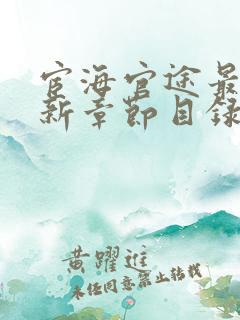 宦海官途最
新章節目錄
黄躍進
未经同意禁止转载